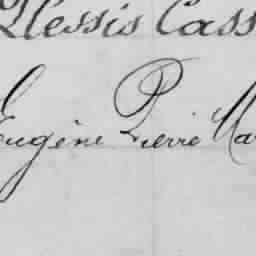 Plessis Cass
Eugène Pierre Ma